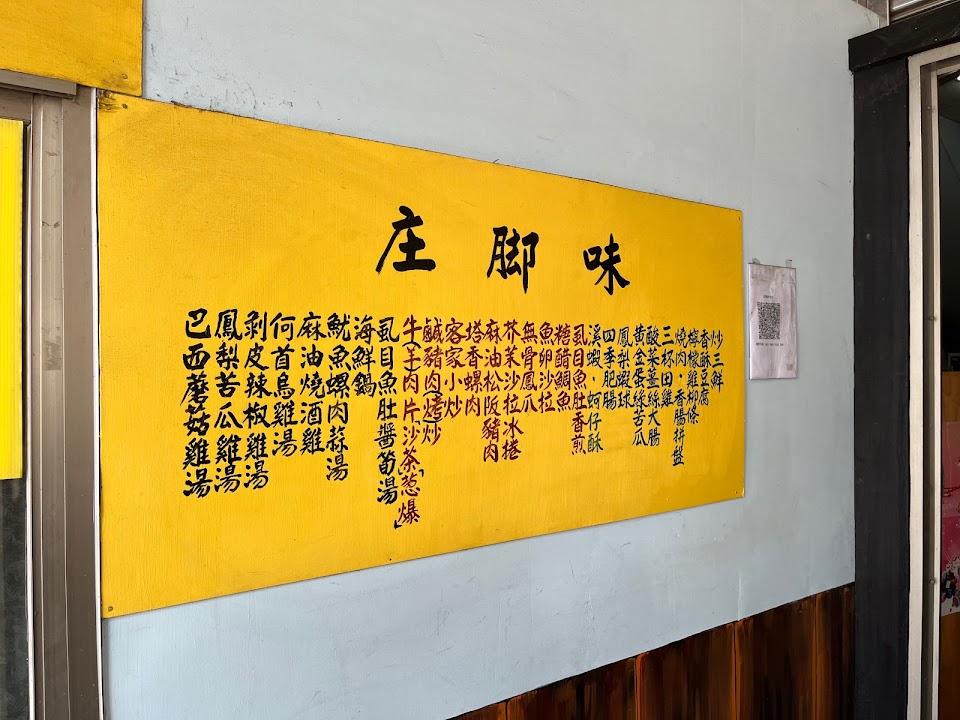 庄脚味
炒三鮮
香酥豆腐
檸檬雞柳條
燒肉、香腸拼盤
三杯田雞
酸菜薑絲大腸
黃金蛋綠苦瓜
鳳梨蝦球
四季肥腸
溪蝦、蚵仔酥
虱目魚肚香煎
糖醋鯛魚
魚卵沙拉
無骨鳳爪
芥茉沙拉冰捲
麻油松阪豬肉
塔香螺肉
客家小炒
鹹豬肉(烤)炒
牛(羊)肉片沙茶「葱爆」
虱目魚肚醬筍湯
海鮮鍋
魷魚螺肉蒜湯
麻油燒酒雞
何首烏雞湯
剝皮辣椒雞湯
鳳梨苦瓜雞湯
巴西蘑菇雞湯